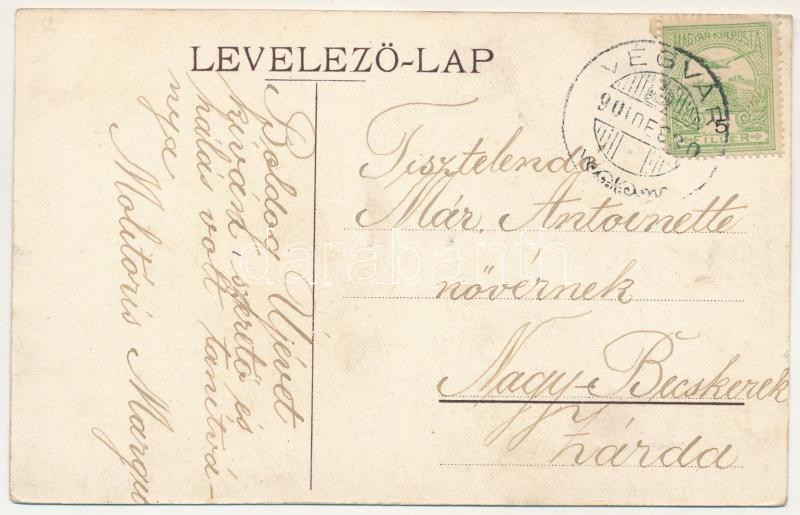 LEVELEZŐ-LAP
Boldog Újévet
kíván, szerető és
hálás volt tanítvá-
nya
Molitóris Margit
Tisztelendő
Már. Antoinette
nővérnek
Nagy-Becskerek
Zárda
MAGYAR KIR. POSTA
5
FILLÉR
VÉGVÁR
darabanth